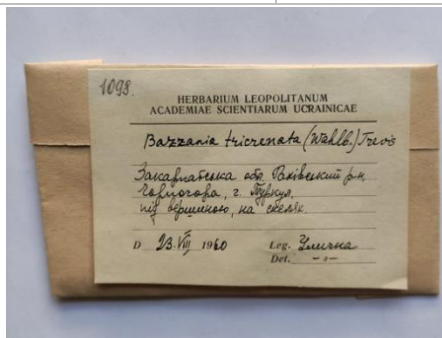 1098.
HERBARIUM LEOPOLITANUM
ACADEMIAE SCIENTIARUM UCRAINICAE
Bazzania tricrenata (Wahlb.) Trevis
Закарпатська обл. Рахівський р-н
Чорногора, г. Туркул,
під вершиною, на скелях.
D 23.VIII 1960 Leg. Улична
Det. –"–